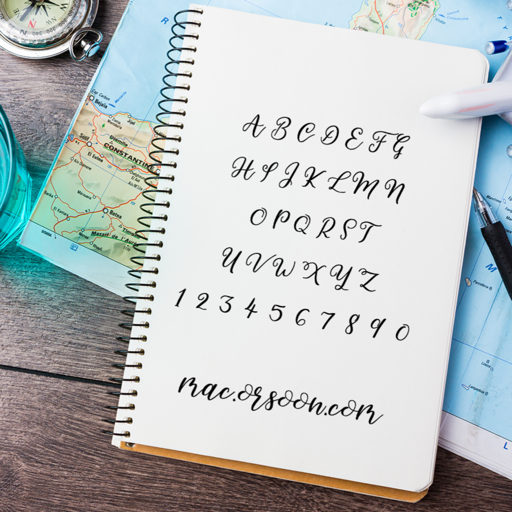 A B C D E F G
H I J K L M N
O P Q R S T
U V W X Y Z
1 2 3 4 5 6 7 8 9 0
mac.orsoon.com
CONSTANTINE